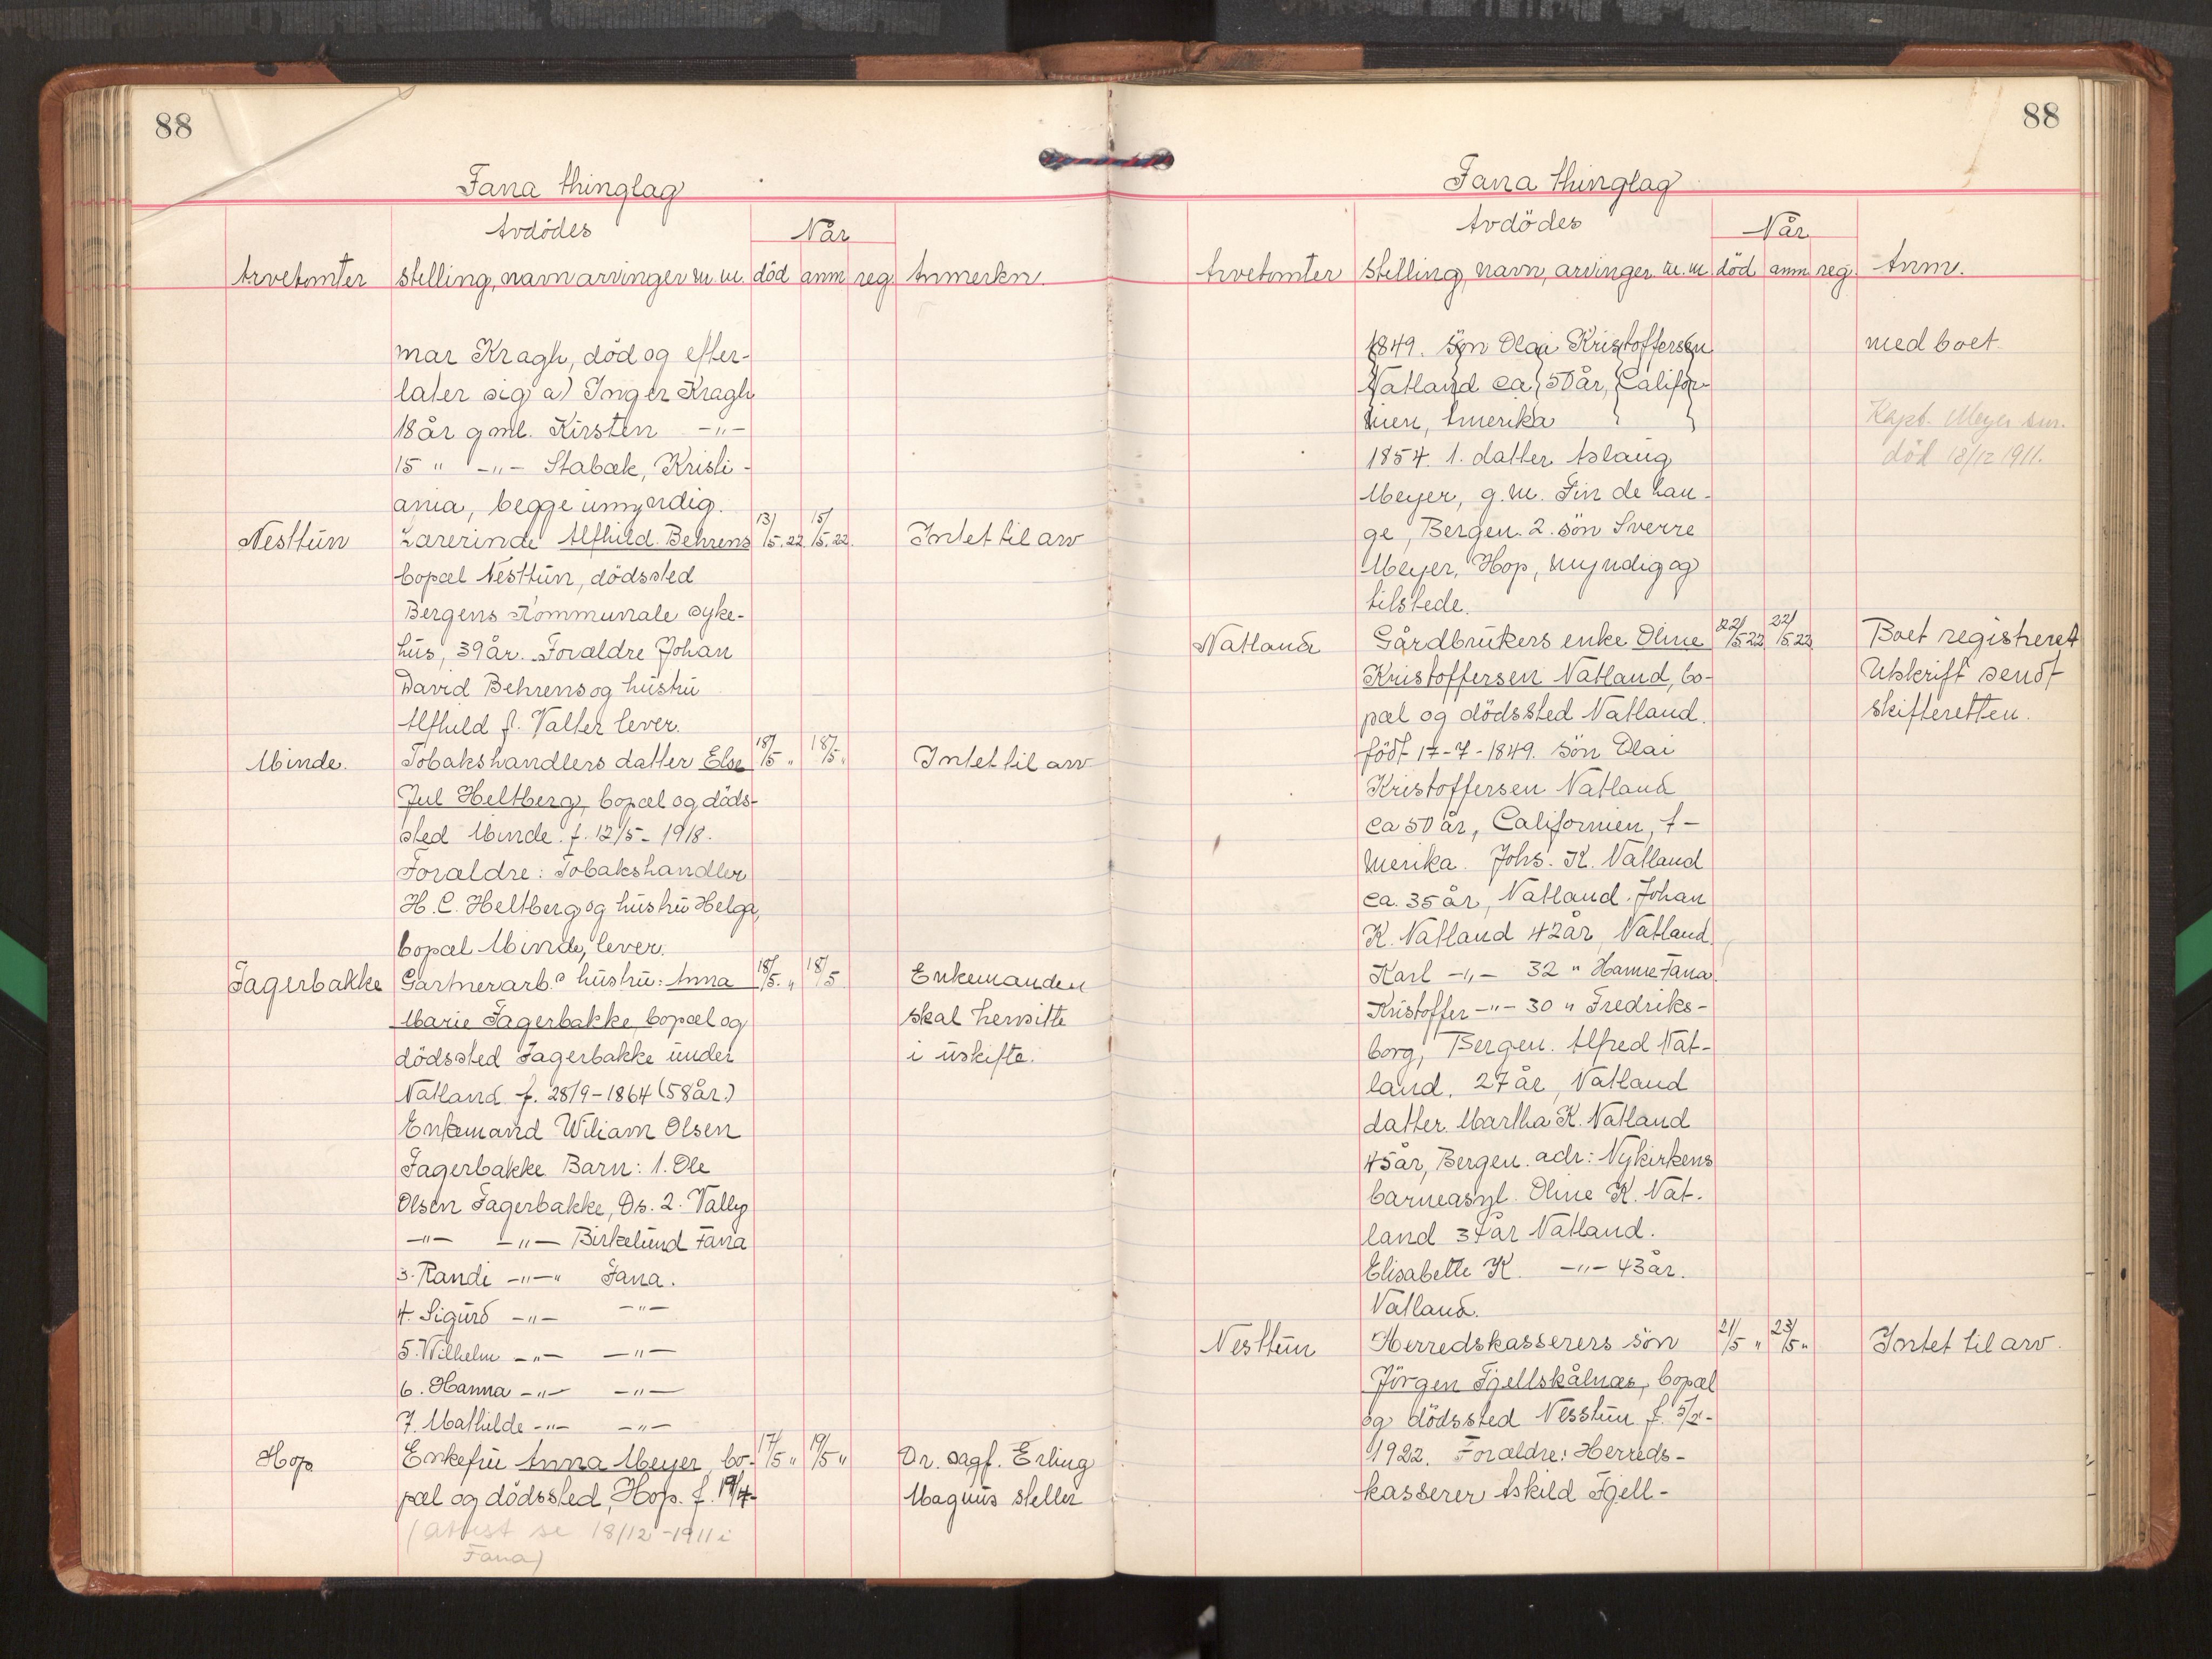 88
Fana thinglag
Avdödes
Når
Arvetomter stelling, navn arvinger m. m. död anm reg Anmerkn.
mar Kragh, död og efter-
later sig a) Inger Kragh
18 år gml. Kirsten -"-
15 " -"- Stabæk, Kristi-
ania, begge umyndig.
Nesttun Lærerinde Alfhild Behrens 13/5.22 15/5.22. Intet til arv
bopæl Nesttun, dödssted
Bergens Kommunale syke-
hus, 39 år. Foræeldre Johan
David Behrens og hustru
Alfhild f. Valter lever.
Minde. Tobakshandlers datter Else 18/5 " 18/5 " Intet til arv
Jul Heltberg, bopæl og döds-
sted Minde. f. 12/5 - 1918.
Forældre: Tobakshandler
H. C. Heltberg og hustru Helga,
bopæl Minde, lever.
Fagerbakke Gartnerarb.s hustru: Anna 18/5. " 18/5 Enkemanden
Marie Fagerbakke, bopæl og skal hensitte
dödssted Fagerbakke under i uskifte.
Natland f. 28/9 - 1864 (58 år.)
Enkemand Wiliam Olsen
Fagerbakke Barn: 1. Ole
Olsen Fagerbakke, Ds. 2. Vally
-"- -"- Birkelund Fana
3. Randi -"-" Fana.
4. Sigurd -"- -"-
5. Wilhelm -"- -"-
6. Hanna -"- -"-
7. Mathilde -"- -"-
Hop Enkefru Anna Meyer, bo- 17/5 " 19/5 " Or. sagf. Erling
pæl og dödssted, Hop. f. 19/4- Magnus steller
(attest se 18/12 - 1911 i
Fana)
88
Fana thinglag
Avdödes
Når
Arvetomter Stelling, navn, arvinger m. m död anm reg. Anm.
1849. Sön Olai Kristoffersen med boet
Natland ca 50 år, Califor-
nien, Amerika Kapt. Meyer sen.
1854. 1. datter Aslaug död 18/12 1911.
Meyer, g. m. Fin de Lan-
ge, Bergen. 2. sön Sverre
Meyer, Hop, myndig og
tilstede.
Natland Gårdbrukers enke Oline 22/5 22 22/5 22 Boet registreret
Kristoffersen Natland, bo- Utskrift sendt
pæl og dödssted Natland. skifteretten.
födt 17-7-1849. Sön Olai
Kristoffersen Natland
ca 50 år, Californien, A-
merika. Johs. K. Natland
ca. 35 år, Natland. Johan
K. Natland 42 år Natland.
Karl -"- 32 " Hamre Fana.
Kristoffer -"- 30 " Fredriks-
borg, Bergen. Alfred Nat-
land. 27 år, Natland
datter Martha K. Natland
45 år, Bergen. adr: Nykirkens
barneasyl. Oline K. Nat-
land 37 år Natland.
Elisabette K. -"- 43 år.
Natland.
Nesttun Herredskasserers sön 21/5 " 23/5 " Intet til arv.
Jörgen Fjellskålnæs, bopæl
og dödssted Nesstun f. 5/2-
1922. Forældre: Herreds-
kasserer Askild Fjell-